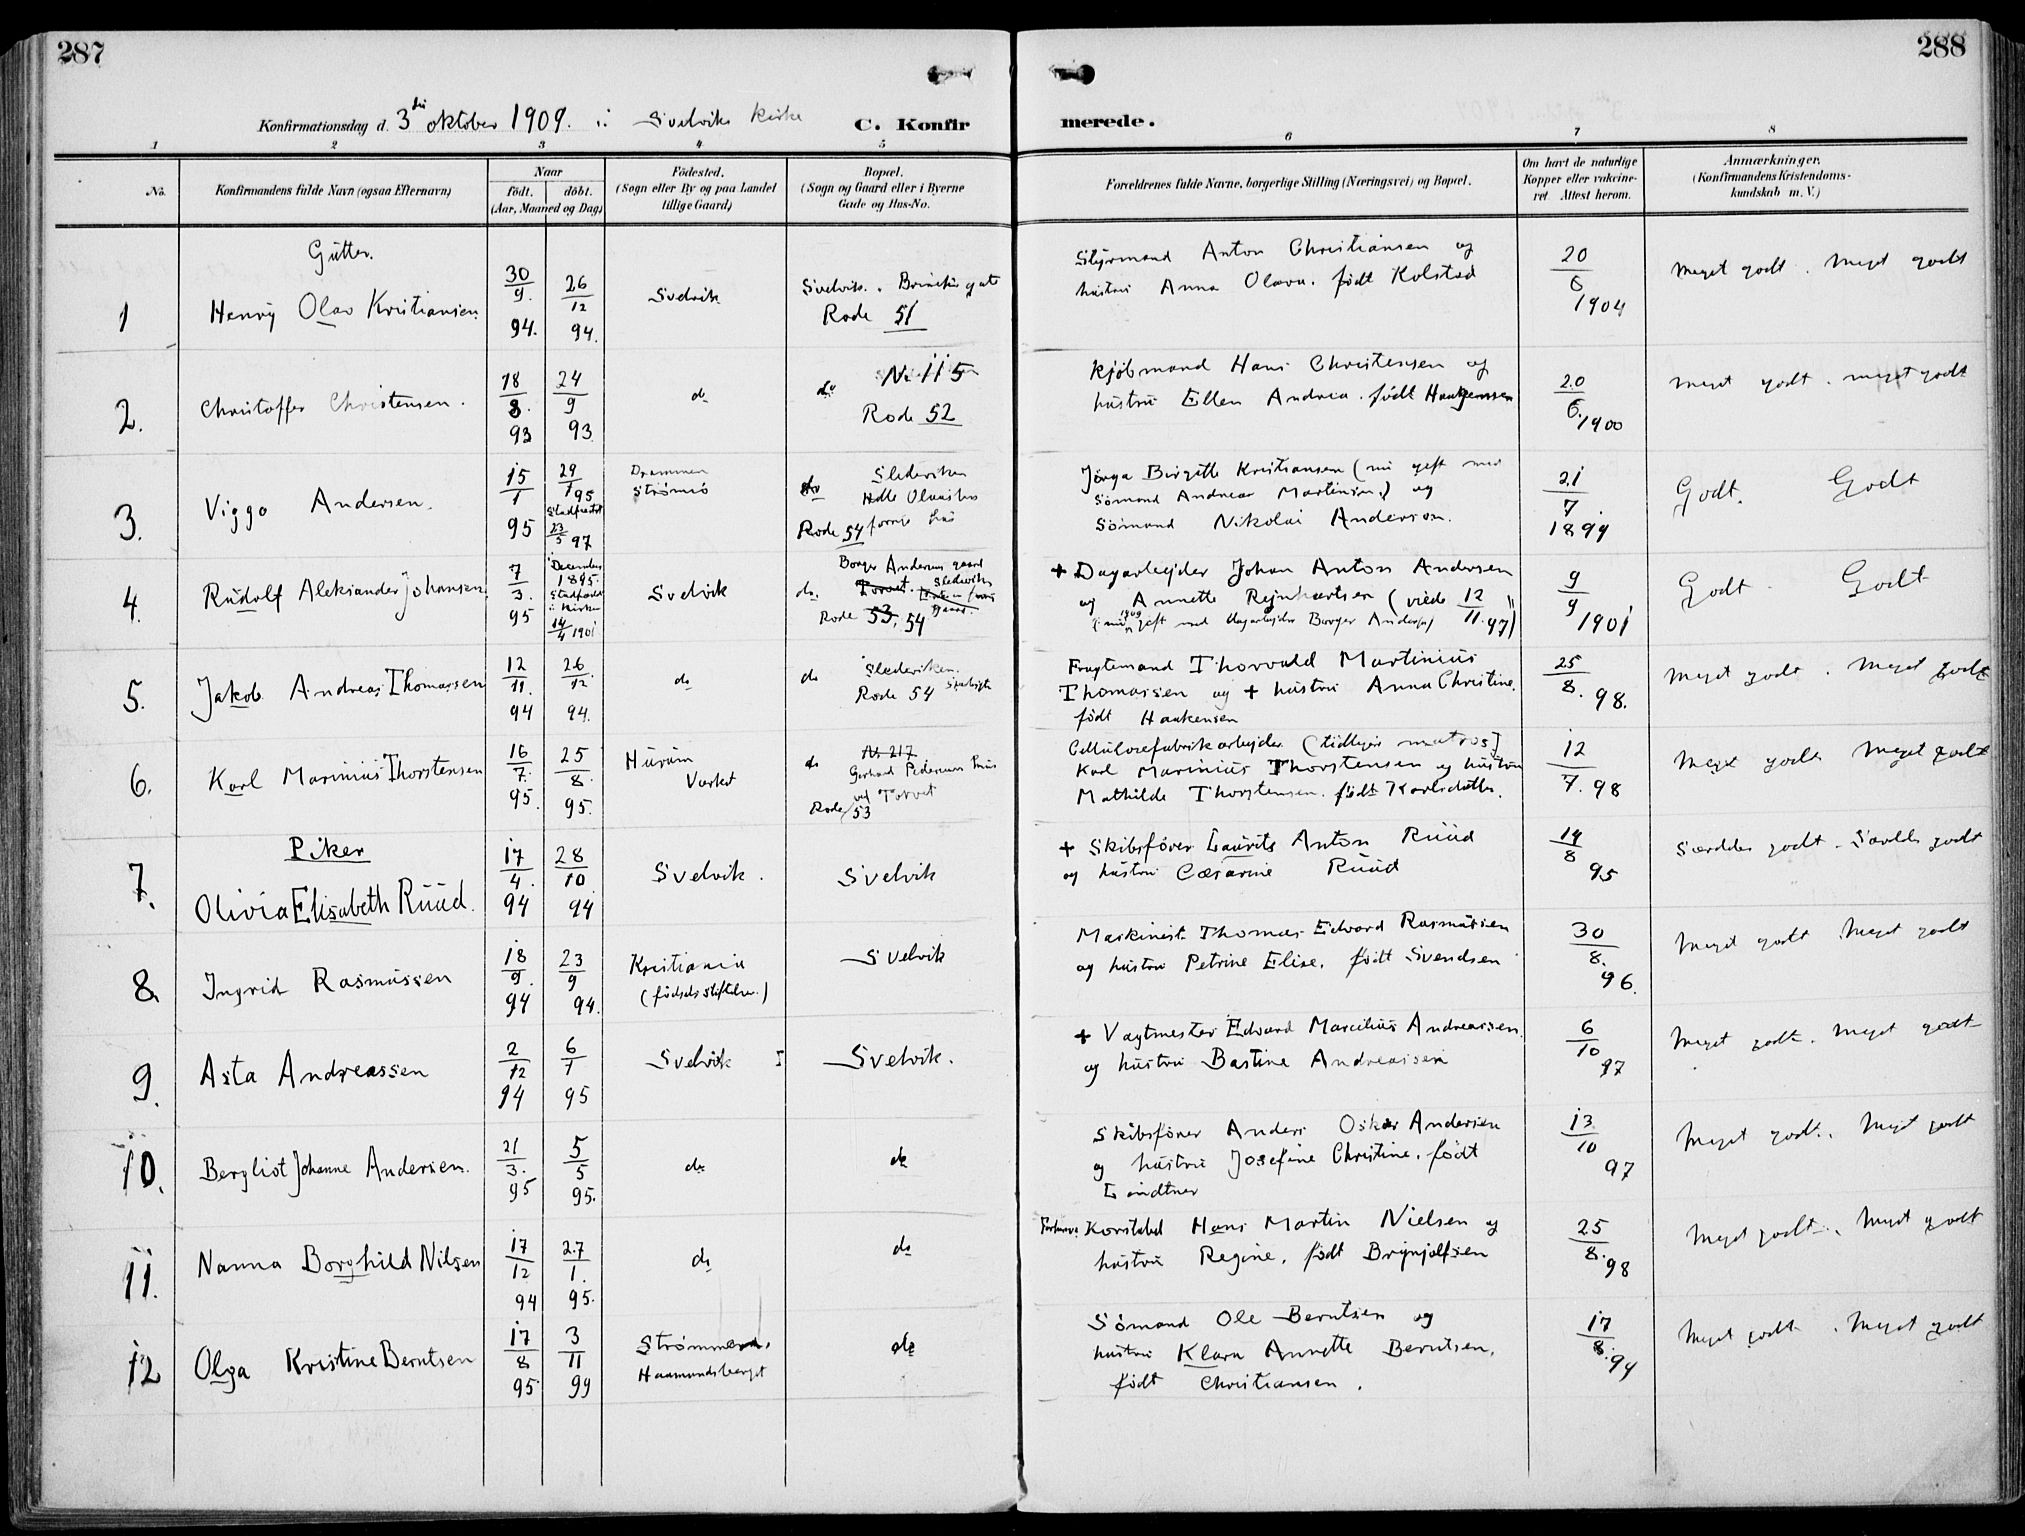 287
288
Konfirmationsdag d. 3die oktober 1909. i Svelviks kirke
C. Konfirmerede.
1 2 3 4 5 6 7 8
No.
Konfirmandens fulde Navn (ogsaa Efternavn)
Naar
født. døbt.
(Aar, Maaned og Dag)
Fødested.
(Sogn eller By og paa Landet
tillige Gaard)
Bopæl.
(Sogn og Gaard eller i Byerne
Gade og Hus-No.
Forældrenes fulde Navne, borgerlige Stilling (Næringsvei) og Bopæl.
Om havt de naturlige
Kopper eller vakcine-
ret. Attest herom.
Anmærkninger.
(Konfirmandens Kristendoms-
kundskab m. V.)
Gutter.
1 Henry Olav Kristiansen 30/9. 94. 26/12 94. Svelvik
Svelvik.
Rode 51
Styrmand Anton Christiansen og
hustru Anna Olava. født Kolstad
20/6 1904
Meget godt. Meget godt
2. Christoffer Christensen. 18/8. 93 24/9 93 do
do No 115
Rode 52
Kjøbmand Hans Christensen og
hustru Ellen Andrea. født Haagensen
20/6. 1900
Meget godt. meget godt
3. Viggo Andersen. 15/1 95 29/1 95
Stadfæstet
23/5 97
Drammen
Strømsø
do Slederviken
Rode 54
Jørga Birgitte Kristiansen (nu gift med
Sømand Andreas Martinsen.) og
Sømand Nikolai Anderson.
21/7. 1899
Godt. Godt
4. Rudolf Aleksander Johansen. 7/3. 95
December
1895.
Stadfæst
i kirken
14/4 1901
Svelvik
Borger Andersens gaard
do. Torvet. Slederviken
Rode 53, 54
+ Dagarbejder Johan Anton Andersen
og Annette Reinhartsen (viede 12/11. 97)
(nu 1909 gift med dagarbejder Borger Andersen)
9/9 1901
Godt. Godt
5. Jakob Andreas Thomassen 12/11. 94 26/12. 94. do
do Slederviken.
Rode 54
Fragtemand Thorvald Martinius
Thomassen og + hustru Anna Christine.
født Haakensen
25/8. 98.
Meget godt. Meget godt
6. Karl Marinius Thorstensen 16/7. 95. 25/8. 95.
Hurum
Verket
do No 217.
Gerhard Pedersens hus
ved Torvet
Rode 53
Cellulosefabrikarbejder (tidligere matros)
Karl Marinius Thorstensen og hustru
Mathilde Thorstensen. født Karlsdatter.
12/7. 98
Meget godt Meget godt
Piker
7. Olivia Elisabeth Ruud. 17/4. 94 28/10 94 Svelvik. Svelvik
+ Skibsfører Laurits Anton Ruud
og hustru Cæsarine Ruud
14/8 95
Særdeles godt. Særdeles godt
8. Ingrid Rasmussen 18/9. 94 23/9 94.
Kristiania
(fødselsstiftelsen.)
Svelvik
Maskinist Thomas Edvard Rasmussen
og hustru Petrine Elise. født Svendsen
30/8. 96.
Meget godt. Meget godt
9. Asta Andreassen 2/12 94 6/1 95 Svelvik Svelvik.
+ Vagtmester Edvard Marcilius Andreassen.
og hustru Bastine Andreassen
6/10 97
Meget godt. Meget godt
10. Bergliot Johanne Andersen. 21/3. 95 5/5 95. do do
Skibsfører Anders Oskar Andersen
og hustru Josefine Christine. født
Lindtner
13/10 97
Meget godt. Meget godt
11. Nanna Borghild Nilsen 17/12 94 27/1. 95. do do
Korstabel Hans Martin Nielsen og
hustru Regine. født Brynjolfsen
25/8. 98
Meget godt. Meget godt
12 Olga Kristine Berntsen 17/8 95 3/11 99
Strømmen.
Haamundsberget
do
Sømand Ole Berntsen og
hustru Klara Annette Berntsen.
født Christiansen.
17/8. 99
Meget godt. Meget godt